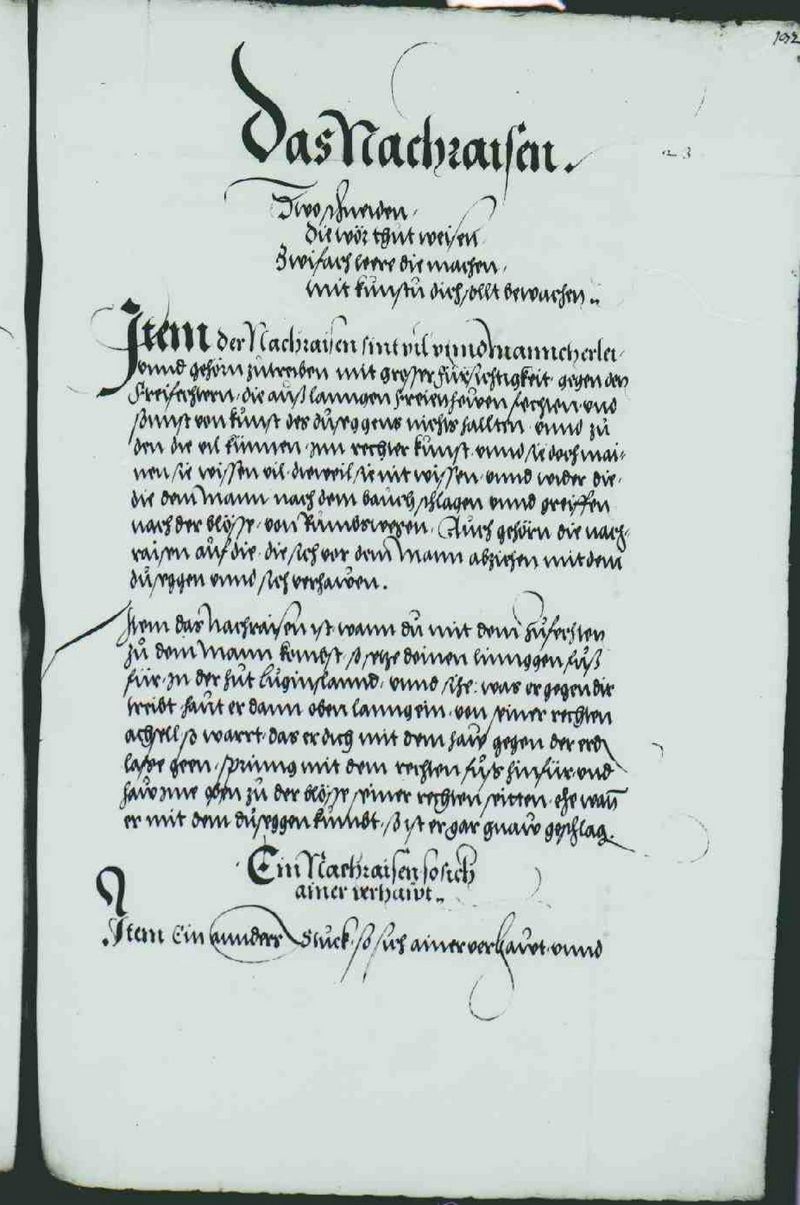 132
Das Nachraisen.
23
Zwo schneiden,
die wör thut weisen,
Zwifach leere die machen,
mit kunst dich sollt bewachen..
Item der Nachraisen sint vil vnnd manncherlei,
vnnd gehörn zutreiben mit grosser fürsichtigkeit gegen den
Freifechtern, die auß lanngen freien hewen fechten, vnd
sunst von kunst des dusseggens nichts hallten, vnnd zu
den die vil künnen, inn rechter kunst, vnnd sie doch mai=
nen sie wissen vil, dieweil sie nit wissen, vnnd wider die,
die dem Mann nach dem bauch schlagen vnnd greiffen
nach der blösse, von kunds wegen. Auch gehörn die nach=
raisen auf die, die sich vor dem Mann abziehen mit dem
duseggen vnnd sich verhawen.
Item das Nachraisen ist wann du mit dem zufechten
zu dem Mann kombst, so setze deinen linnggen fuß
für, in der hut luginslannd, vnnd sihe, was er gegen dir
treibt, haut er dann oben lanng ein, von seiner rechten
achsell, so warrt, das er dich mit dem haw gegen der erd
lasse geen, spring mit dem rechten fuß hinfür, vnd
haw ime oben zu der blösse seiner rechten seitten, ehe wan̄
er mit dem duseggen kumbt, so ist er gar gnaw geschlag.
Ein Nachraisen so sich
ainer verhawt..
Item Ein annders Stuck, so sich ainer verhawt, vnnd